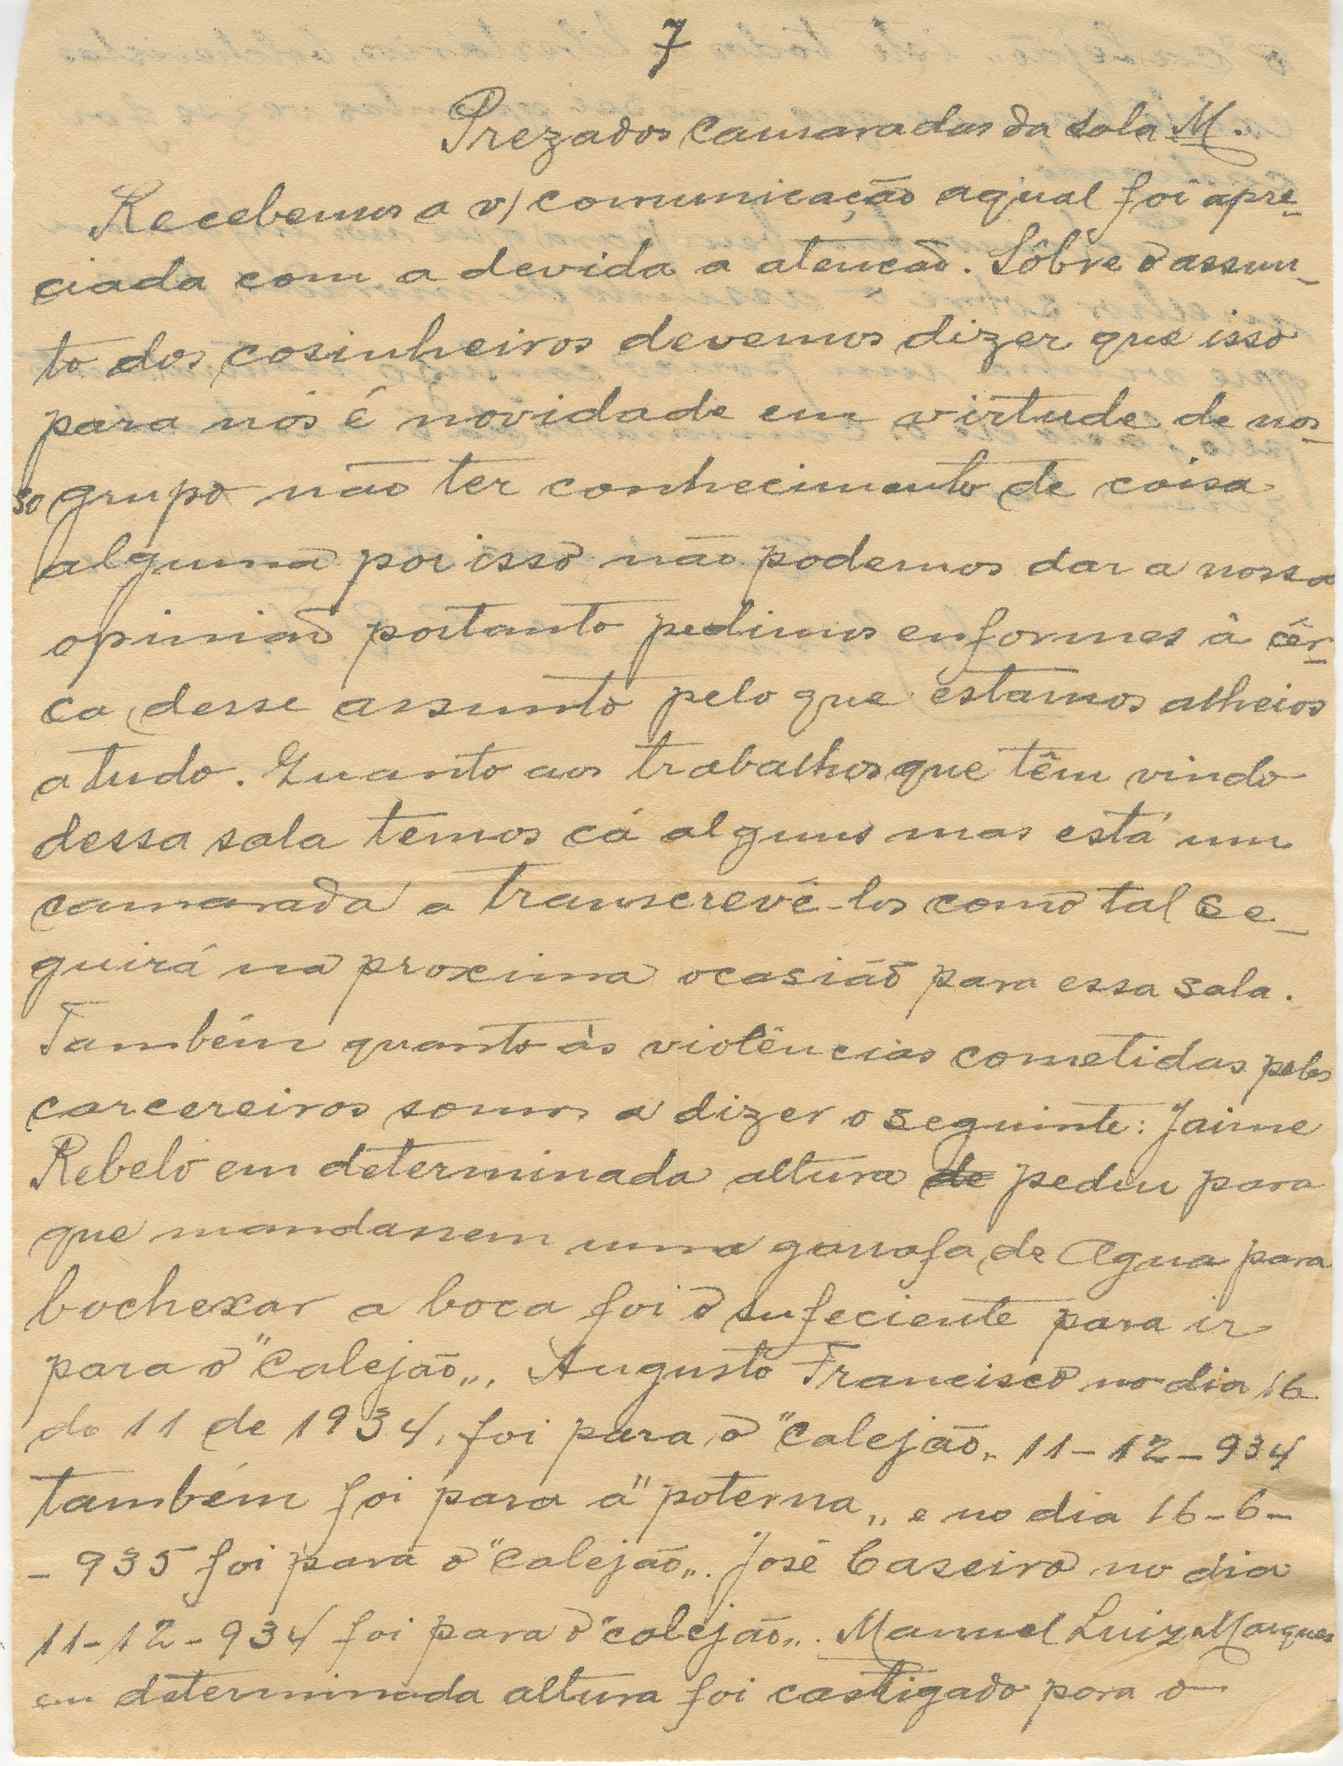 7
Prezados camaradas da sala M.
Recebemos a v/ comunicação aqual foi apre-
ciada com a devida a atenção. Sôbre o assun-
to dos cosinheiros devemos dizer que isso
para nós é novidade em virtude de nos-
so grupo não ter conhecimento de coisa
alguma por isso não podemos dar a nossa
opinião portanto pedimos enformes à cêr-
ca desse assunto pelo que estamos alheios
a tudo. Quanto aos trabalhos que têm vindo
dessa sala temos cá alguns mas está um
camarada a transcrevê-los como tal se-
guirá na proxima ocasião para essa sala.
Também quanto às violências cometidas pelos
carcereiros somos a dizer o seguinte: Jaime
Rebelo em determinada altura de pediu para
que mandassem uma garrafa de Agua para
bochexar a boca foi o sufeciente para ir
para o "Calejão„. Augusto Francisco no dia 16
do 11 de 1934, foi para o "Calejão„ 11-12-934
também foi para a "poterna„ e no dia 16-6-
-935 foi para o "Calejão„. José Caseiro no dia
11-12-934 foi para o "calejão„. Manuel Luiz Marques
em determinada altura foi castigado para o